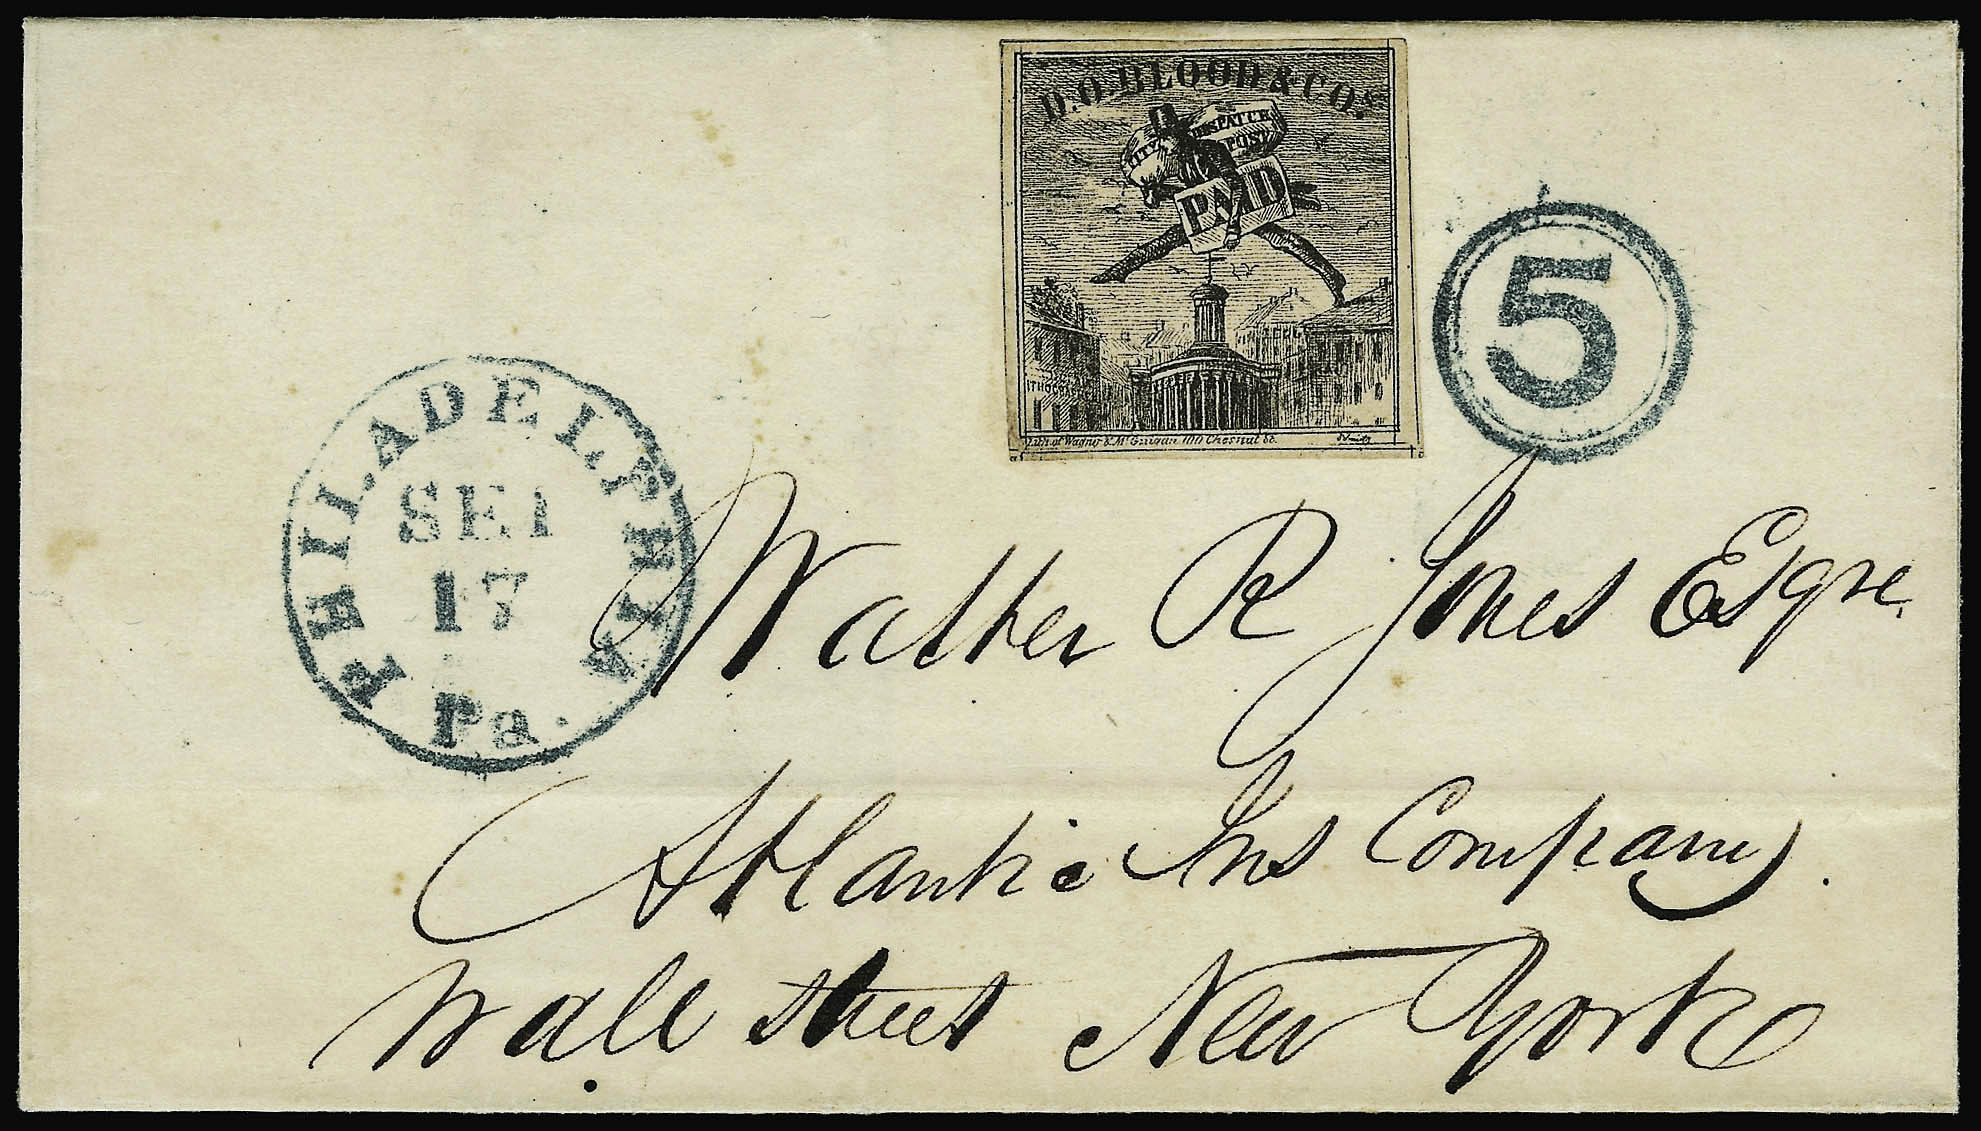 D.O. BLOOD & CO'S
CITY DESPATCH
POST
PAID
Lith of Wagner & McGuigan 100 Chesnut St.
5
PHILADELPHIA
SEP
17
Pa.
Walter R Jones Esqre.
Atlantic Ins Company.
Wall street New York